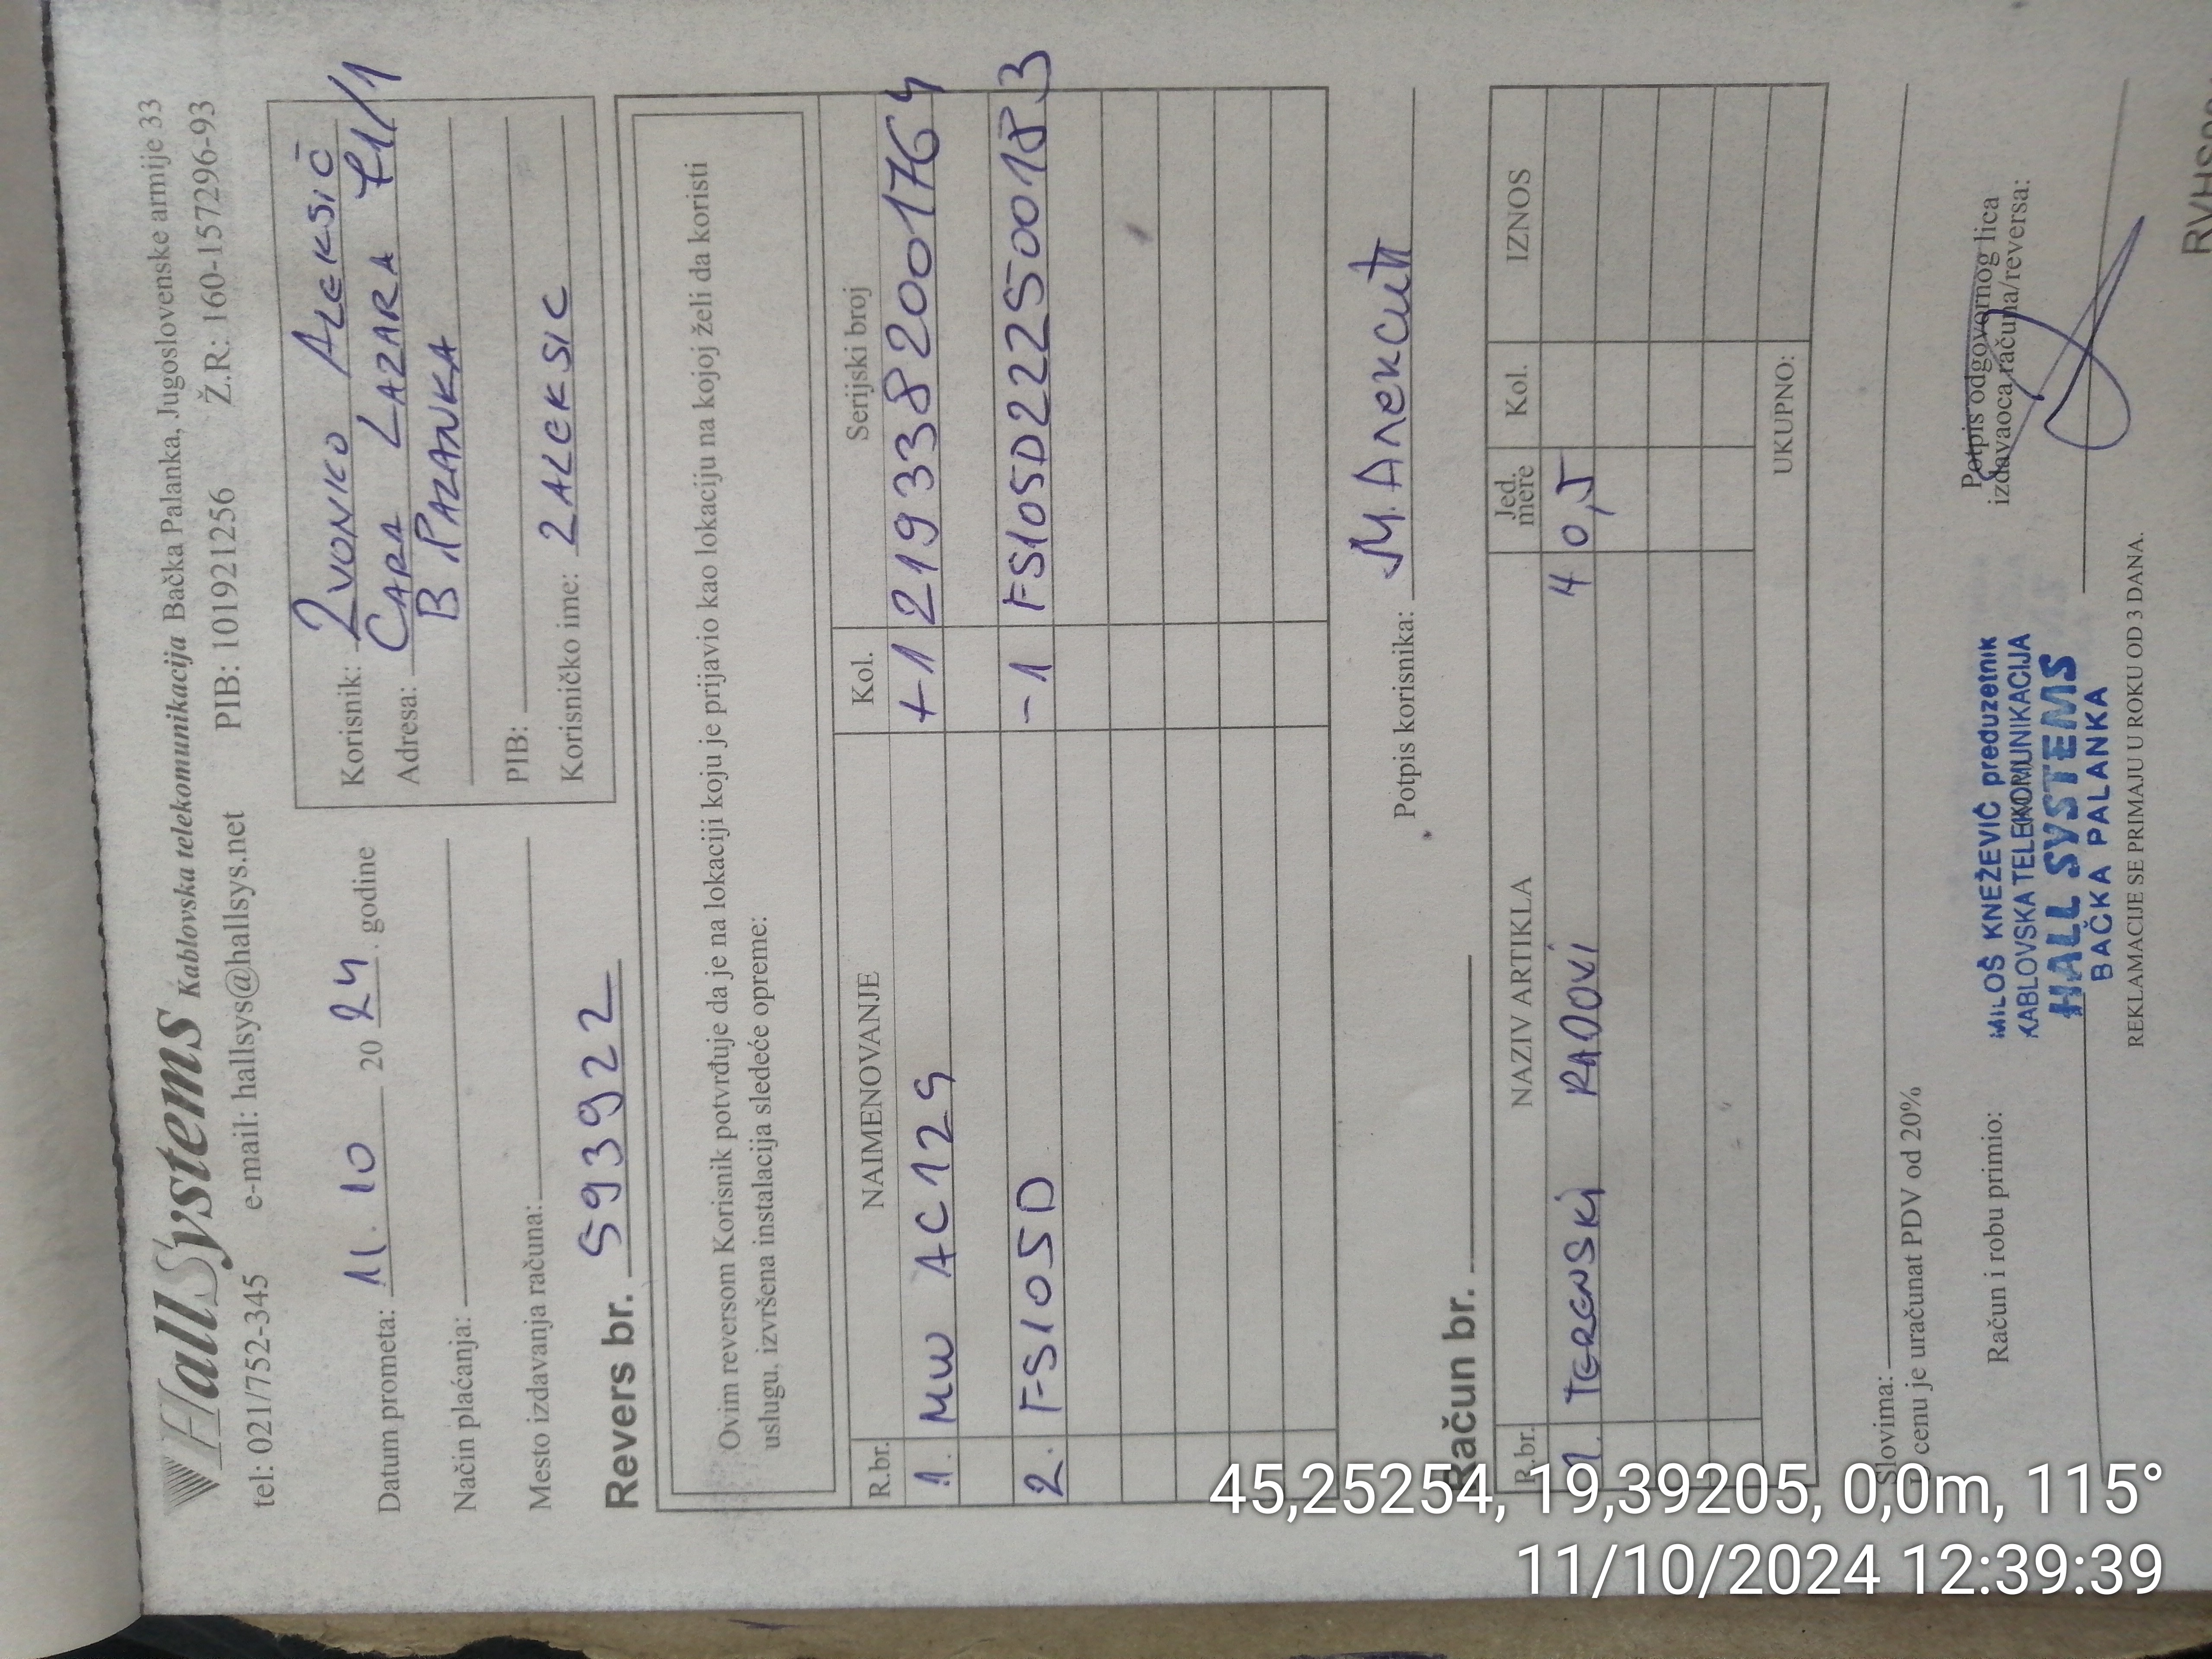 HallSystems Kablovska telekomunikacija Bačka Palanka, Jugoslovenske armije 33
tel: 021/752-345 e-mail: hallsys@hallsys.net PIB: 101921256 Ž.R: 160-157296-93
Datum prometa: 11. 10 20 24. godine
Način plaćanja:
Mesto izdavanja računa:
Korisnik: ZVONKO ALEKSIĆ
Adresa: CARA LAZARA 41/1
B. PALANKA
PIB:
Korisničko ime: ZALEKSIC
Revers br. 593922
Ovim reversom Korisnik potvrđuje da je na lokaciji koju je prijavio kao lokaciju na kojoj želi da koristi
uslugu, izvršena instalacija sledeće opreme:
R.br. NAIMENOVANJE Kol. Serijski broj
1. MW AC12G +1 2193382001764
2. FS105D -1 FS105D222500183
Potpis korisnika: М. Алексић
Račun br.
R.br. NAZIV ARTIKLA Jed. mere Kol. IZNOS
1. TERENSKI RADOVI 4 0,5
UKUPNO:
Slovima:
U cenu je uračunat PDV od 20%
Račun i robu primio:
MILOŠ KNEŽEVIĆ preduzetnik
KABLOVSKA TELEKOMUNIKACIJA
HALL SYSTEMS
BAČKA PALANKA
Potpis odgovornog lica
izdavaoca računa/reversa:
REKLAMACIJE SE PRIMAJU U ROKU OD 3 DANA.
45,25254, 19,39205, 0,0m, 115°
11/10/2024 12:39:39